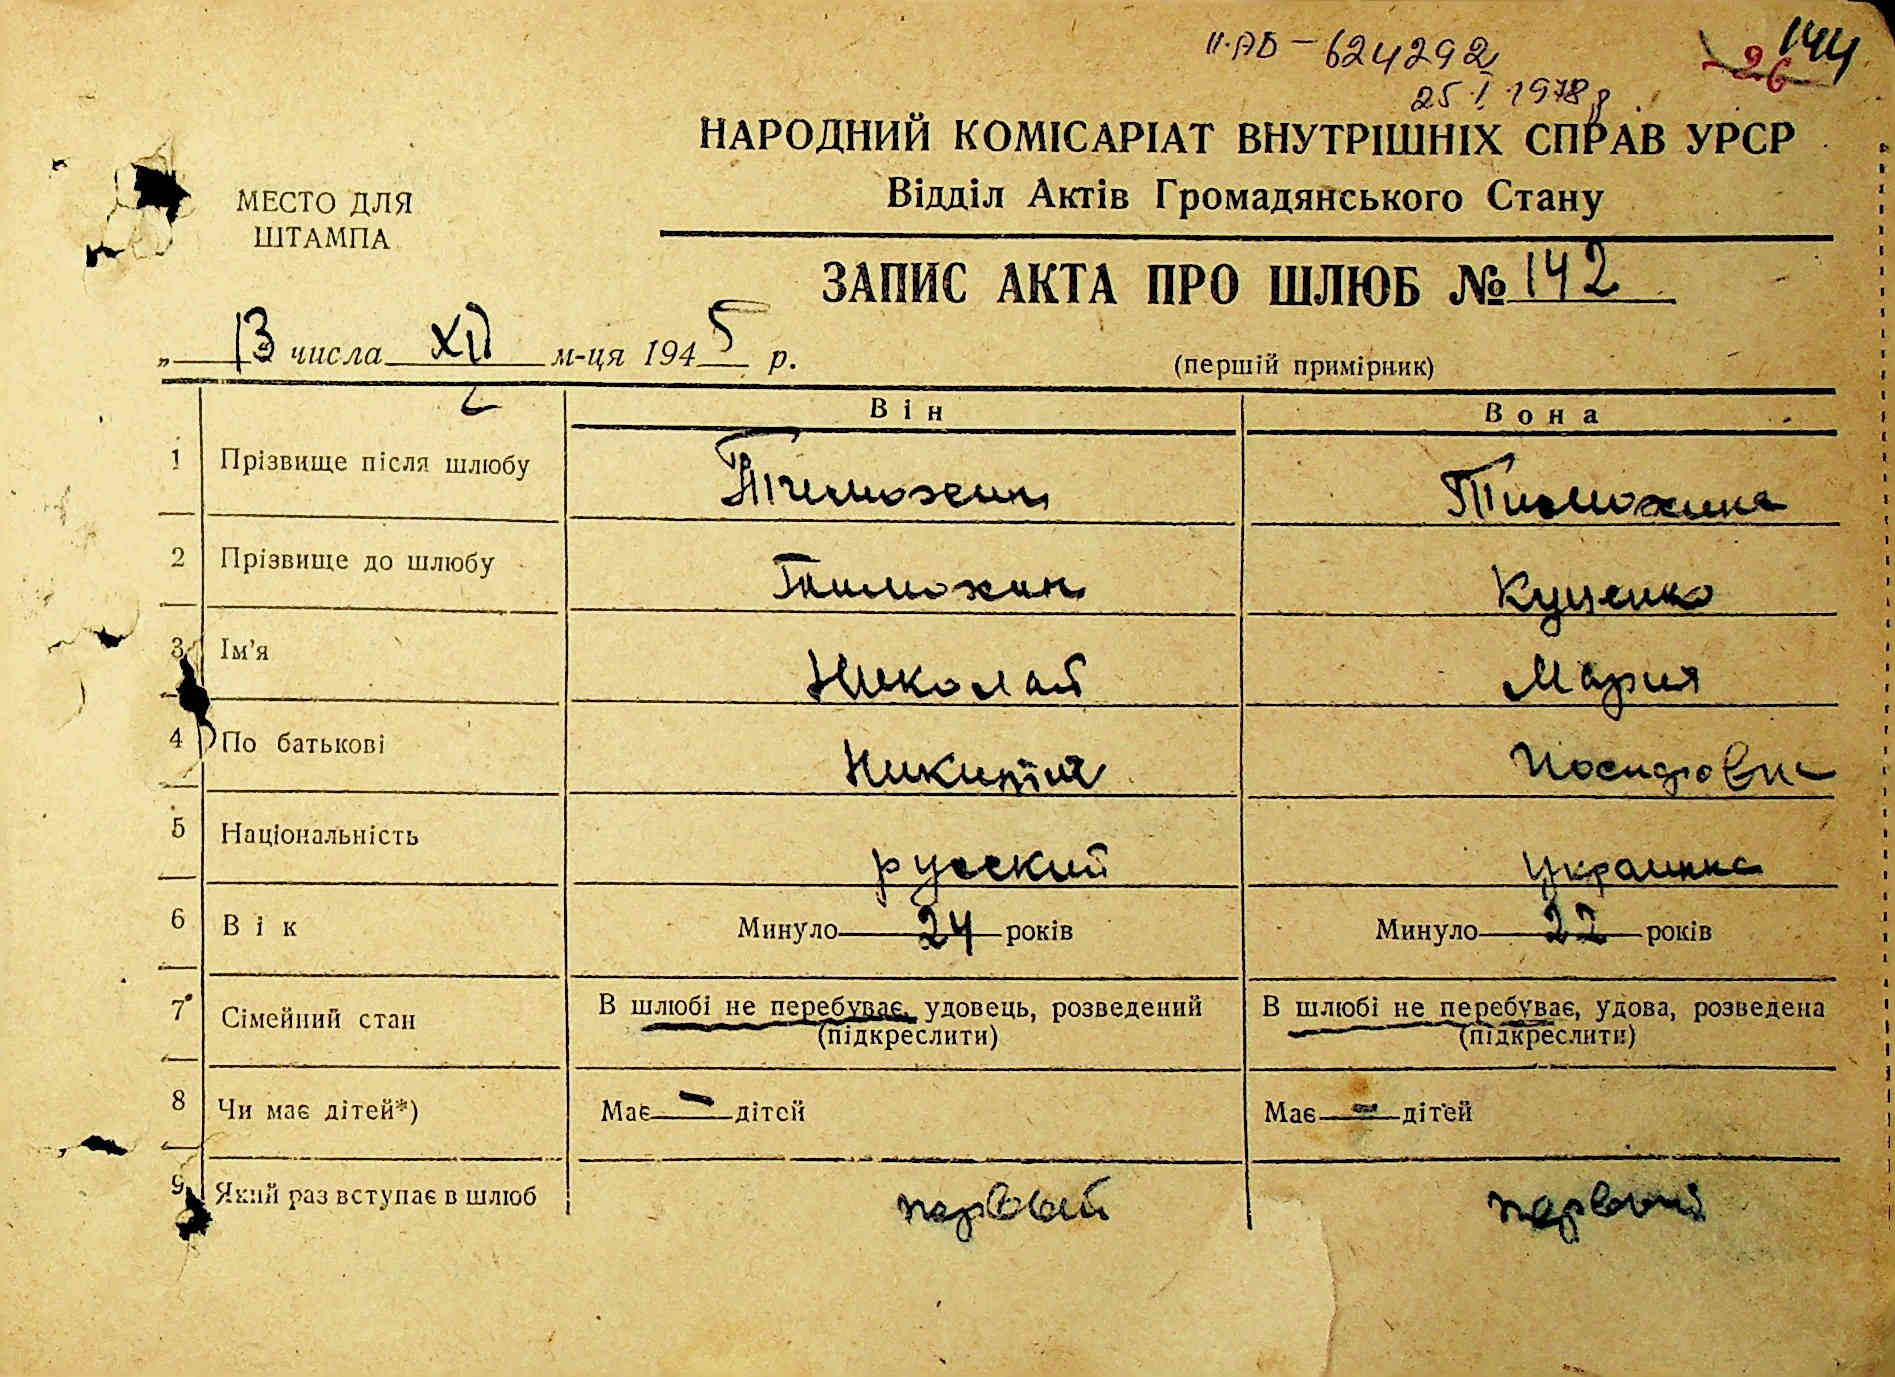 II-АБ – 624292
144
26
25.I.1978 р.
НАРОДНИЙ КОМІСАРІАТ ВНУТРІШНІХ СПРАВ УРСР
Відділ Актів Громадянського Стану
МЕСТО ДЛЯ
ШТАМПА
ЗАПИС АКТА ПРО ШЛЮБ № 142
„ 13 числа XII м-ця 1945 р.
(першій примірник)
Він Вона
1 Прізвище після шлюбу Тимохин Тимохина
2 Прізвище до шлюбу Тимохин Куценко
3 Ім'я Николай Мария
4 По батькові Никитич
5 Національність русский украинка
6 Вік Минуло 24 років Минуло 22 років
7 Сімейний стан В шлюбі не перебуває, удовець, розведений В шлюбі не перебуває, удова, розведена
(підкреслити) (підкреслити)
8 Чи має дітей*) Має – дітей Має – дітей
9 Який раз вступає в шлюб первый первый